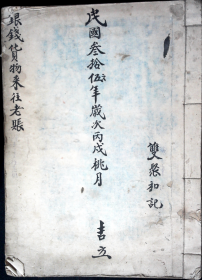 雙聚和記
民國叁拾伍年歲次丙戌桃月
吉立
銀錢貨物来往老賬